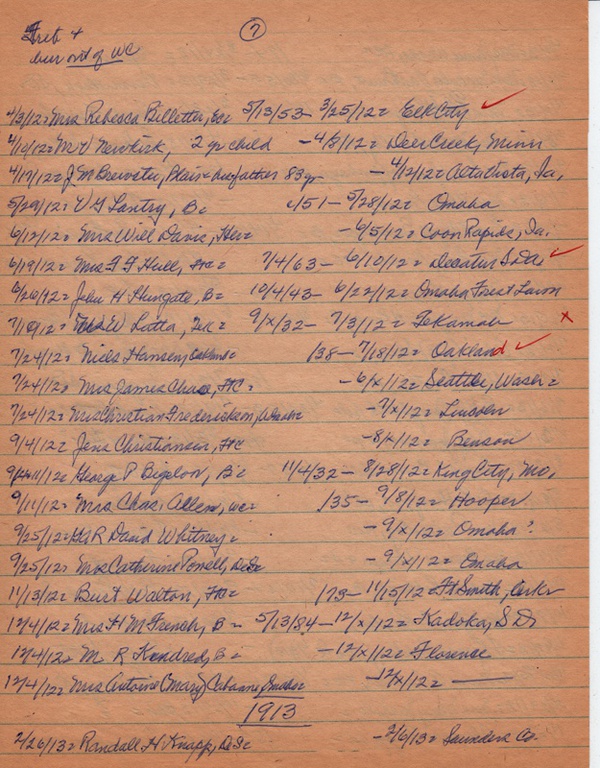 7
bur out of WC
4/3/12= Mrs Rebecca Billetter, 5/13/53- 3/25/12= Elk City
4/10/12= Newkirk, 2 yr child -4/8/12= Deer Creek, Minn
4/17/12= J M Brewster, Blair = father 83 yr -4/12/12= Alta Vista, Ia,
5/29/12= V G Lantry, B= /51- 5/28/12= Omaha
6/12/12= Mrs Will Davis, Her= -6/5/12= Coon Rapids, Ia,
6/19/12= Mrs Hull, 7/4/63- 6/10/12= Decatur
6/26/12= John H Shugate, B= 10/4/43- 6/22/12= Omaha Forest Lawn
7/10/12= W Latta, Tek= 9/x/32- 7/3/12= Tekamah x
7/24/12= Niels Hansen, Oakland= /38- 7/18/12= Oakland
7/24/12= Mrs James Chase, FC= -6/x/12= Seattle, Wash=
7/24/12= Mrs Christian Frederickson, -7/x/12= Lincoln
9/4/12= Jens Christiansen, FC -8/x/12= Benson
George P Bigelow, B= 11/4/32- 8/28/12= King City, Mo,
9/11/12= Mrs Chas Allen, WC= /35- 9/8/12= Hooper
9/25/12= David Whitney= -9/x/12= Omaha?
9/25/12= Mrs Catherine Powell, DeSo -9/x/12= Omaha
11/13/12= Burt Walton, FC= /79- 11/15/12= Ft Smith, Ark=
12/4/12= Mrs H M French, B= 5/13/84- 12/x/12= Kadoka, S D=
12/4/12= M R Kendred, B= -12/x/12= Florence
12/4/12= Mrs Antoine (Mary) Cabanne Omaha= -12/x/12= —
1913
2/26/13= Randall H Knapp, DeSo= -2/6/13= Saunders Co.